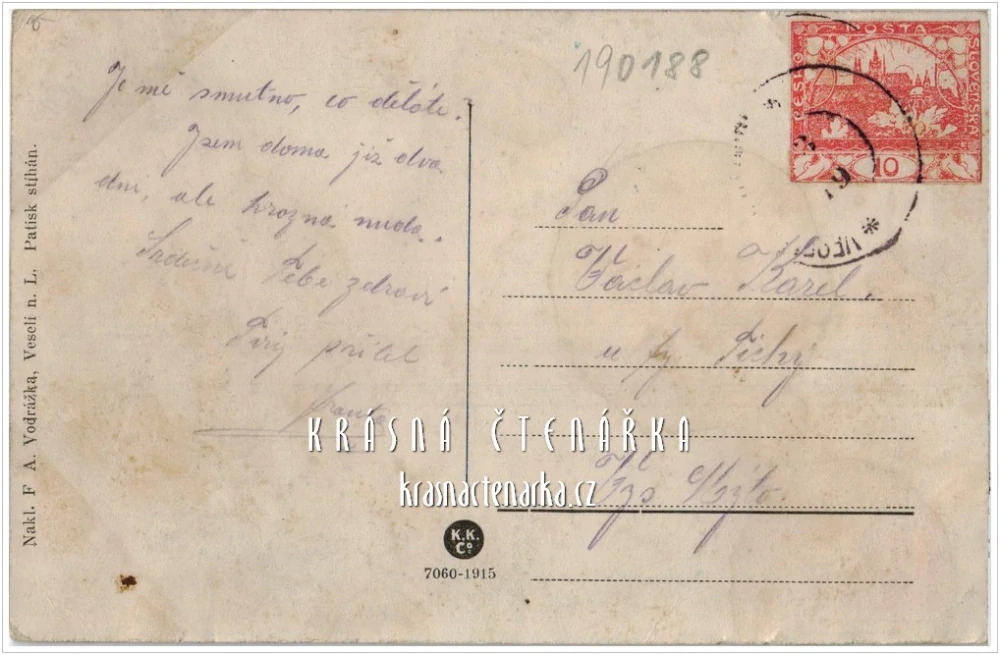 190188
ČESKO-SLOVENSKÁ
POŠTA
10
19
Je mě smutno, co děláte.
Jsem doma již dva
dni, ale hrozná nuda.
Srdečně Tebe zdraví
Tvůj přítel
Franta
Pan
Václav Karel,
u fy Tichý
Vys. Mýto.
Nakl. F A. Vodrážka, Veselí n. L. Patisk stíhán.
KRÁSNÁ ČTENÁŘKA
krasnactenarka.cz
K.K.
Co.
7060-1915